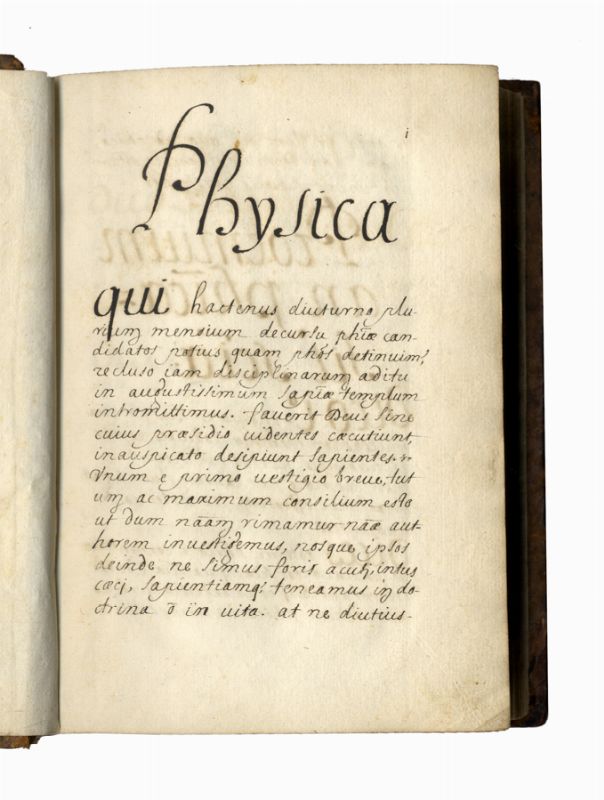 i
Physica
qui hactenus diuturno plu-
rium mensium decursu phiæ can-
didatos potius quam phos detinuim',
recluso iam disciplinarum aditu
in augustissimum sapiæ templum
intromittimus. faverit Deus sine
cuius præsidio videntes cæcutiunt,
inauspicato desipiunt sapientes.
Vnum e primo vestigio breve, tut
um ac maximum consilium esto
ut dum naam rimamur naæ aut
horem investigemus, nosque ipsos
deinde ne simus foris acuti, intus
cæci, sapientiamq; teneamus in do-
ctrina ō in vita. at ne diutius-